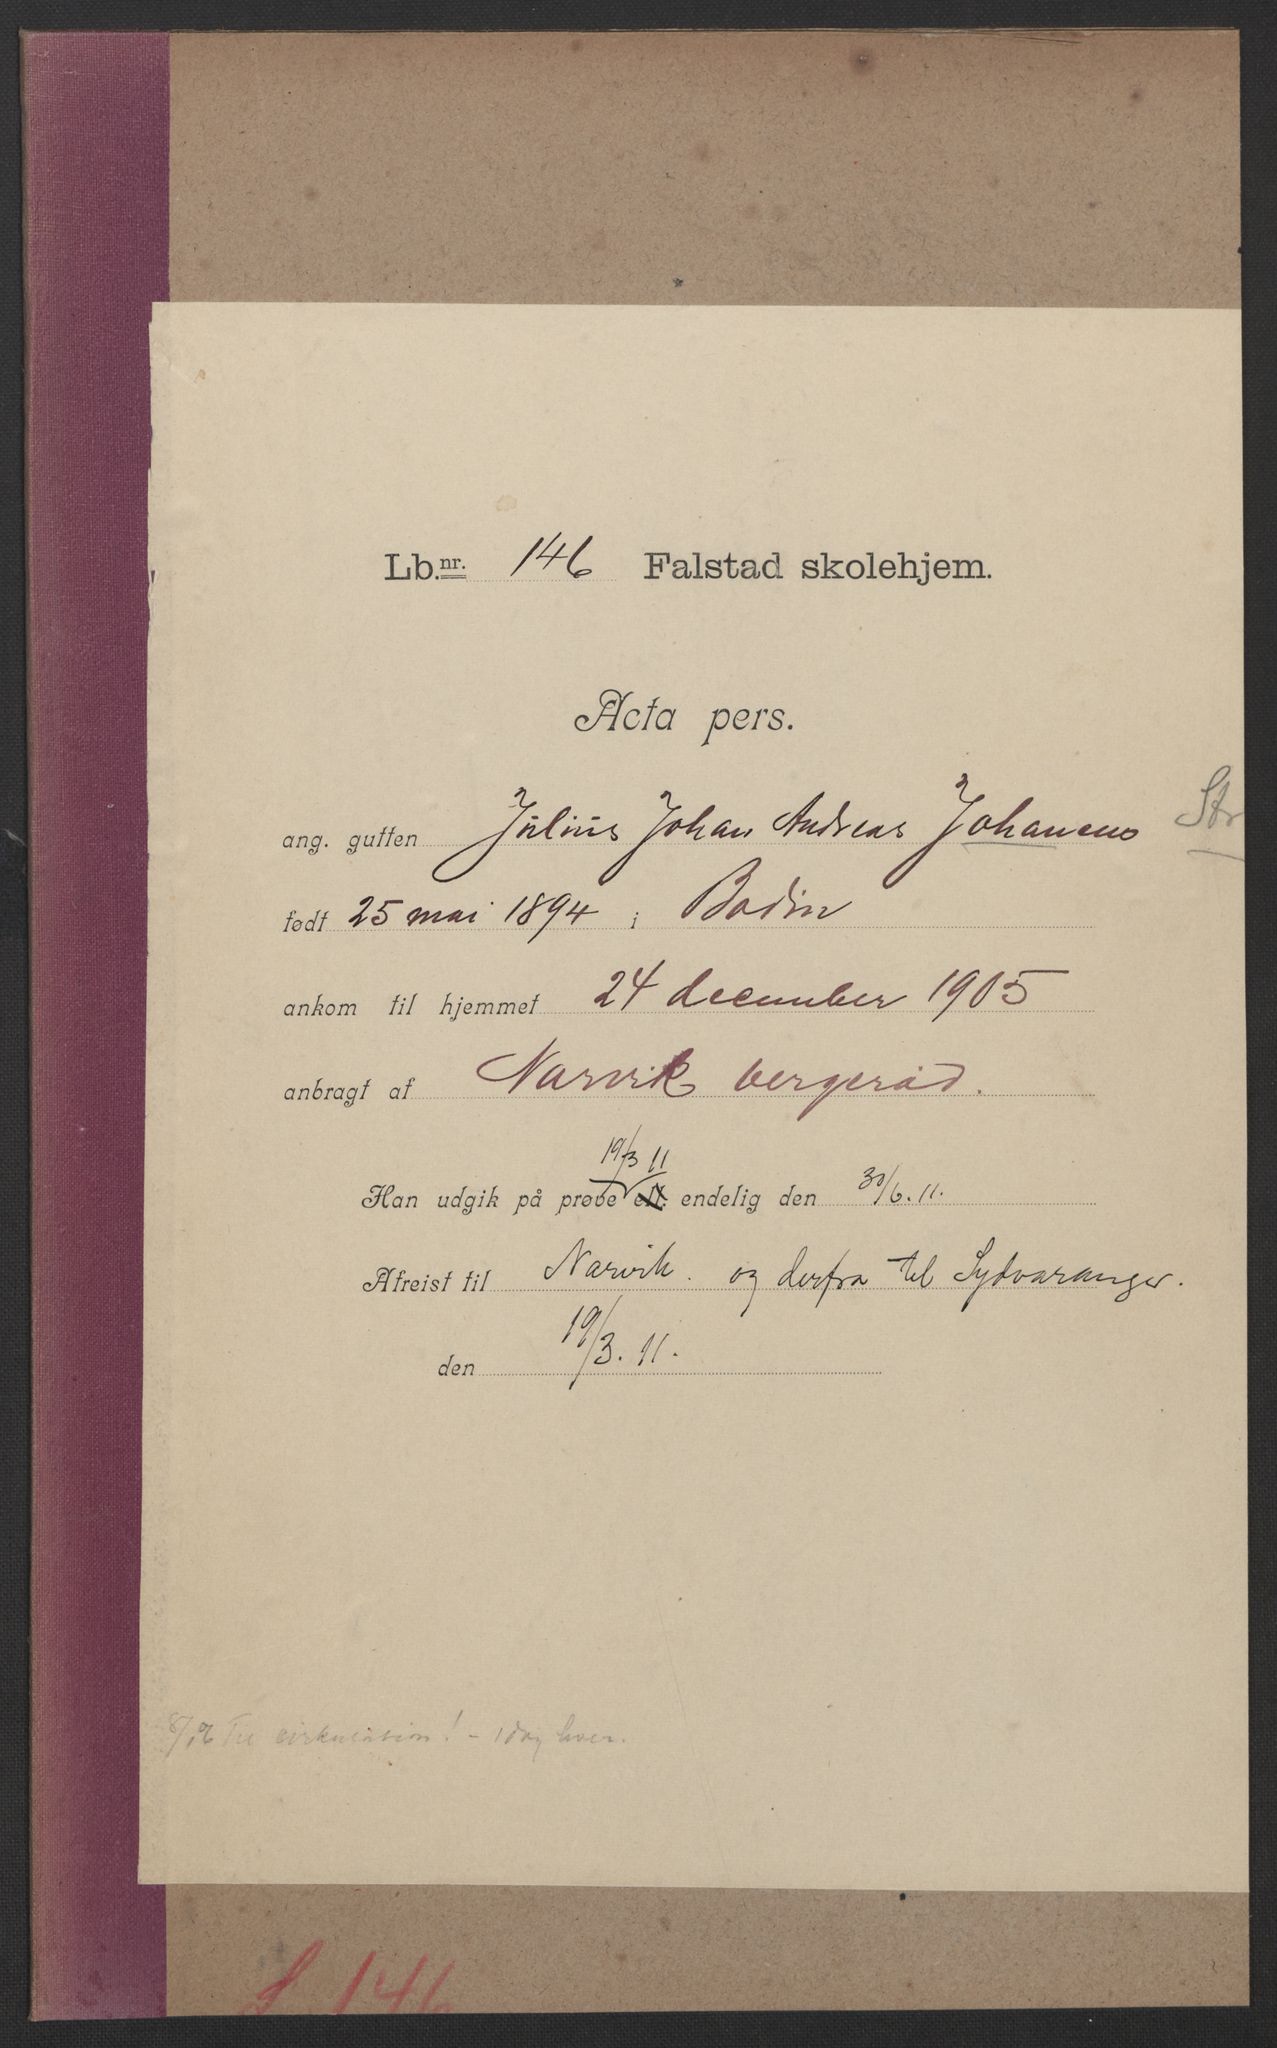 Lb.nr. 146 Falstad skolehjem.
Acta pers.
ang. gutten Julius Johan Andreas Johansens
Str
født 25 mai 1894 i Bodin
ankom til hjemmet 24 december 1905
anbragt af Narvik vergeråd.
19/3 11
Han udgik på prøve elt. endelig den 30/6. 11.
Afreist til Narvik. og derfra til Sydvaranger.
den 19/3. 11.
Til cirkulation! - 1 dag hver.
L 146